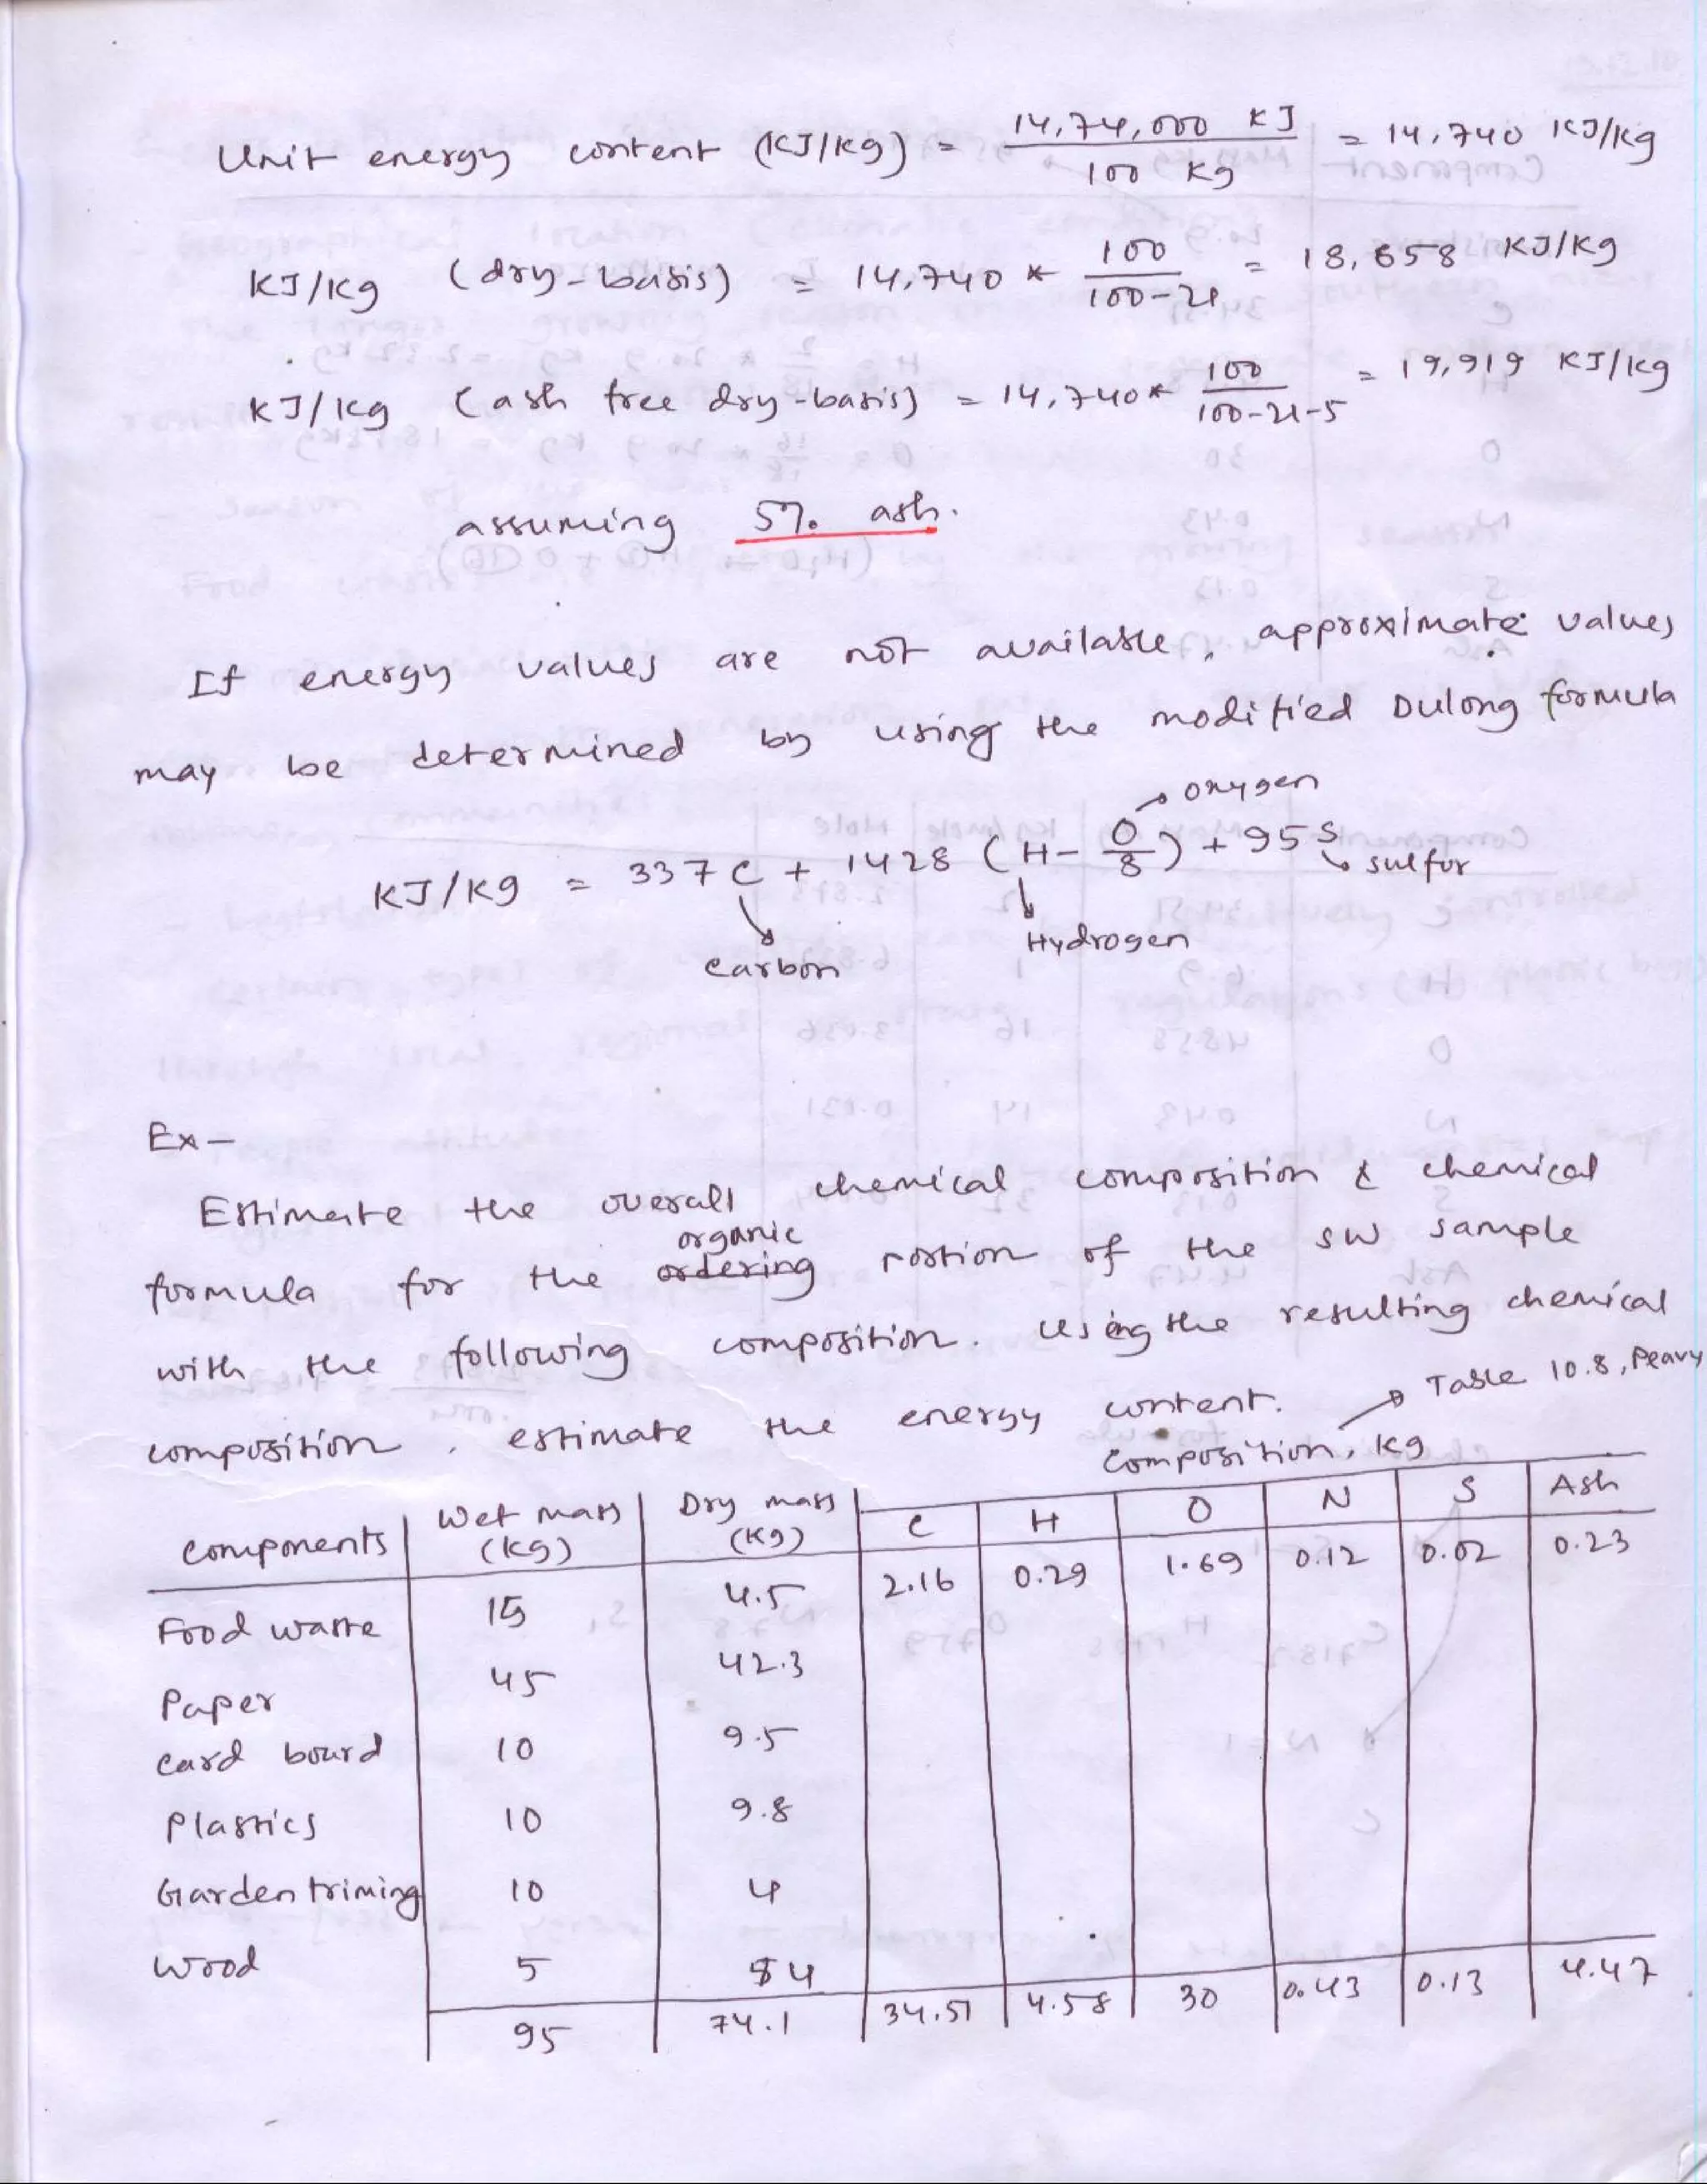 Unit energy content (KJ/kg) = 14,74,000 KJ / 100 Kg = 14,740 KJ/kg
KJ/kg (dry-basis) = 14,740 * 100 / 100-21 = 18,658 KJ/kg
KJ/kg (ash free dry-basis) = 14,740 * 100 / 100-21-5 = 19,919 KJ/kg
assuming 5% ash.
If energy values are not available, approximate values
may be determined by using the modified Dulong formula
→ oxygen
KJ/Kg = 337C + 1428 (H - O/8) + 95S → sulfur
Hydrogen
Carbon
Ex -
Estimate the overall chemical composition & chemical
organic
formula for the ordering portion of the SW sample
with the following composition. Using the resulting chemical
composition, estimate the energy content. → Table 10.8, Peavy
Composition, kg
Components | Wet mass (kg) | Dry mass (kg) | C | H | O | N | S | Ash
Food waste 15 4.5 2.16 0.29 1.69 0.12 0.02 0.23
Paper 45 42.3
Card board 10 9.5
Plastics 10 9.8
Garden triming 10 4
Wood 5 4
95 74.1 34.51 4.58 30 0.43 0.13 4.47